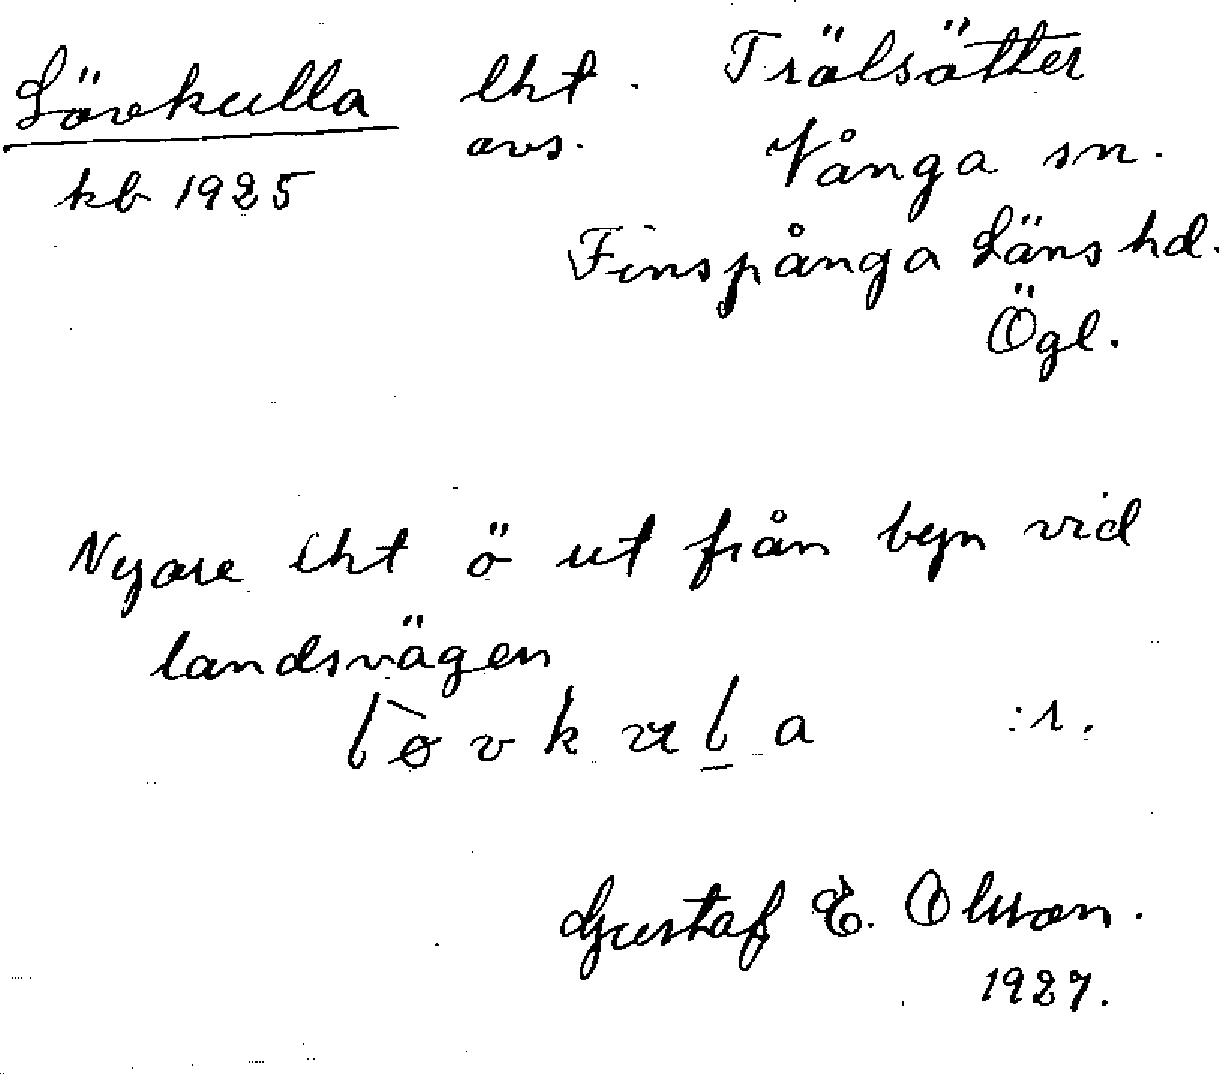 Lövkulla lht. Trälsätter
avs. Vånga sn.
kb 1925
Finspånga Läns hd.
Ögl.
Nyare lht ö ut från byn vid
landsvägen
lø̀vkula :1.
Gustaf E. Olsson.
1927.